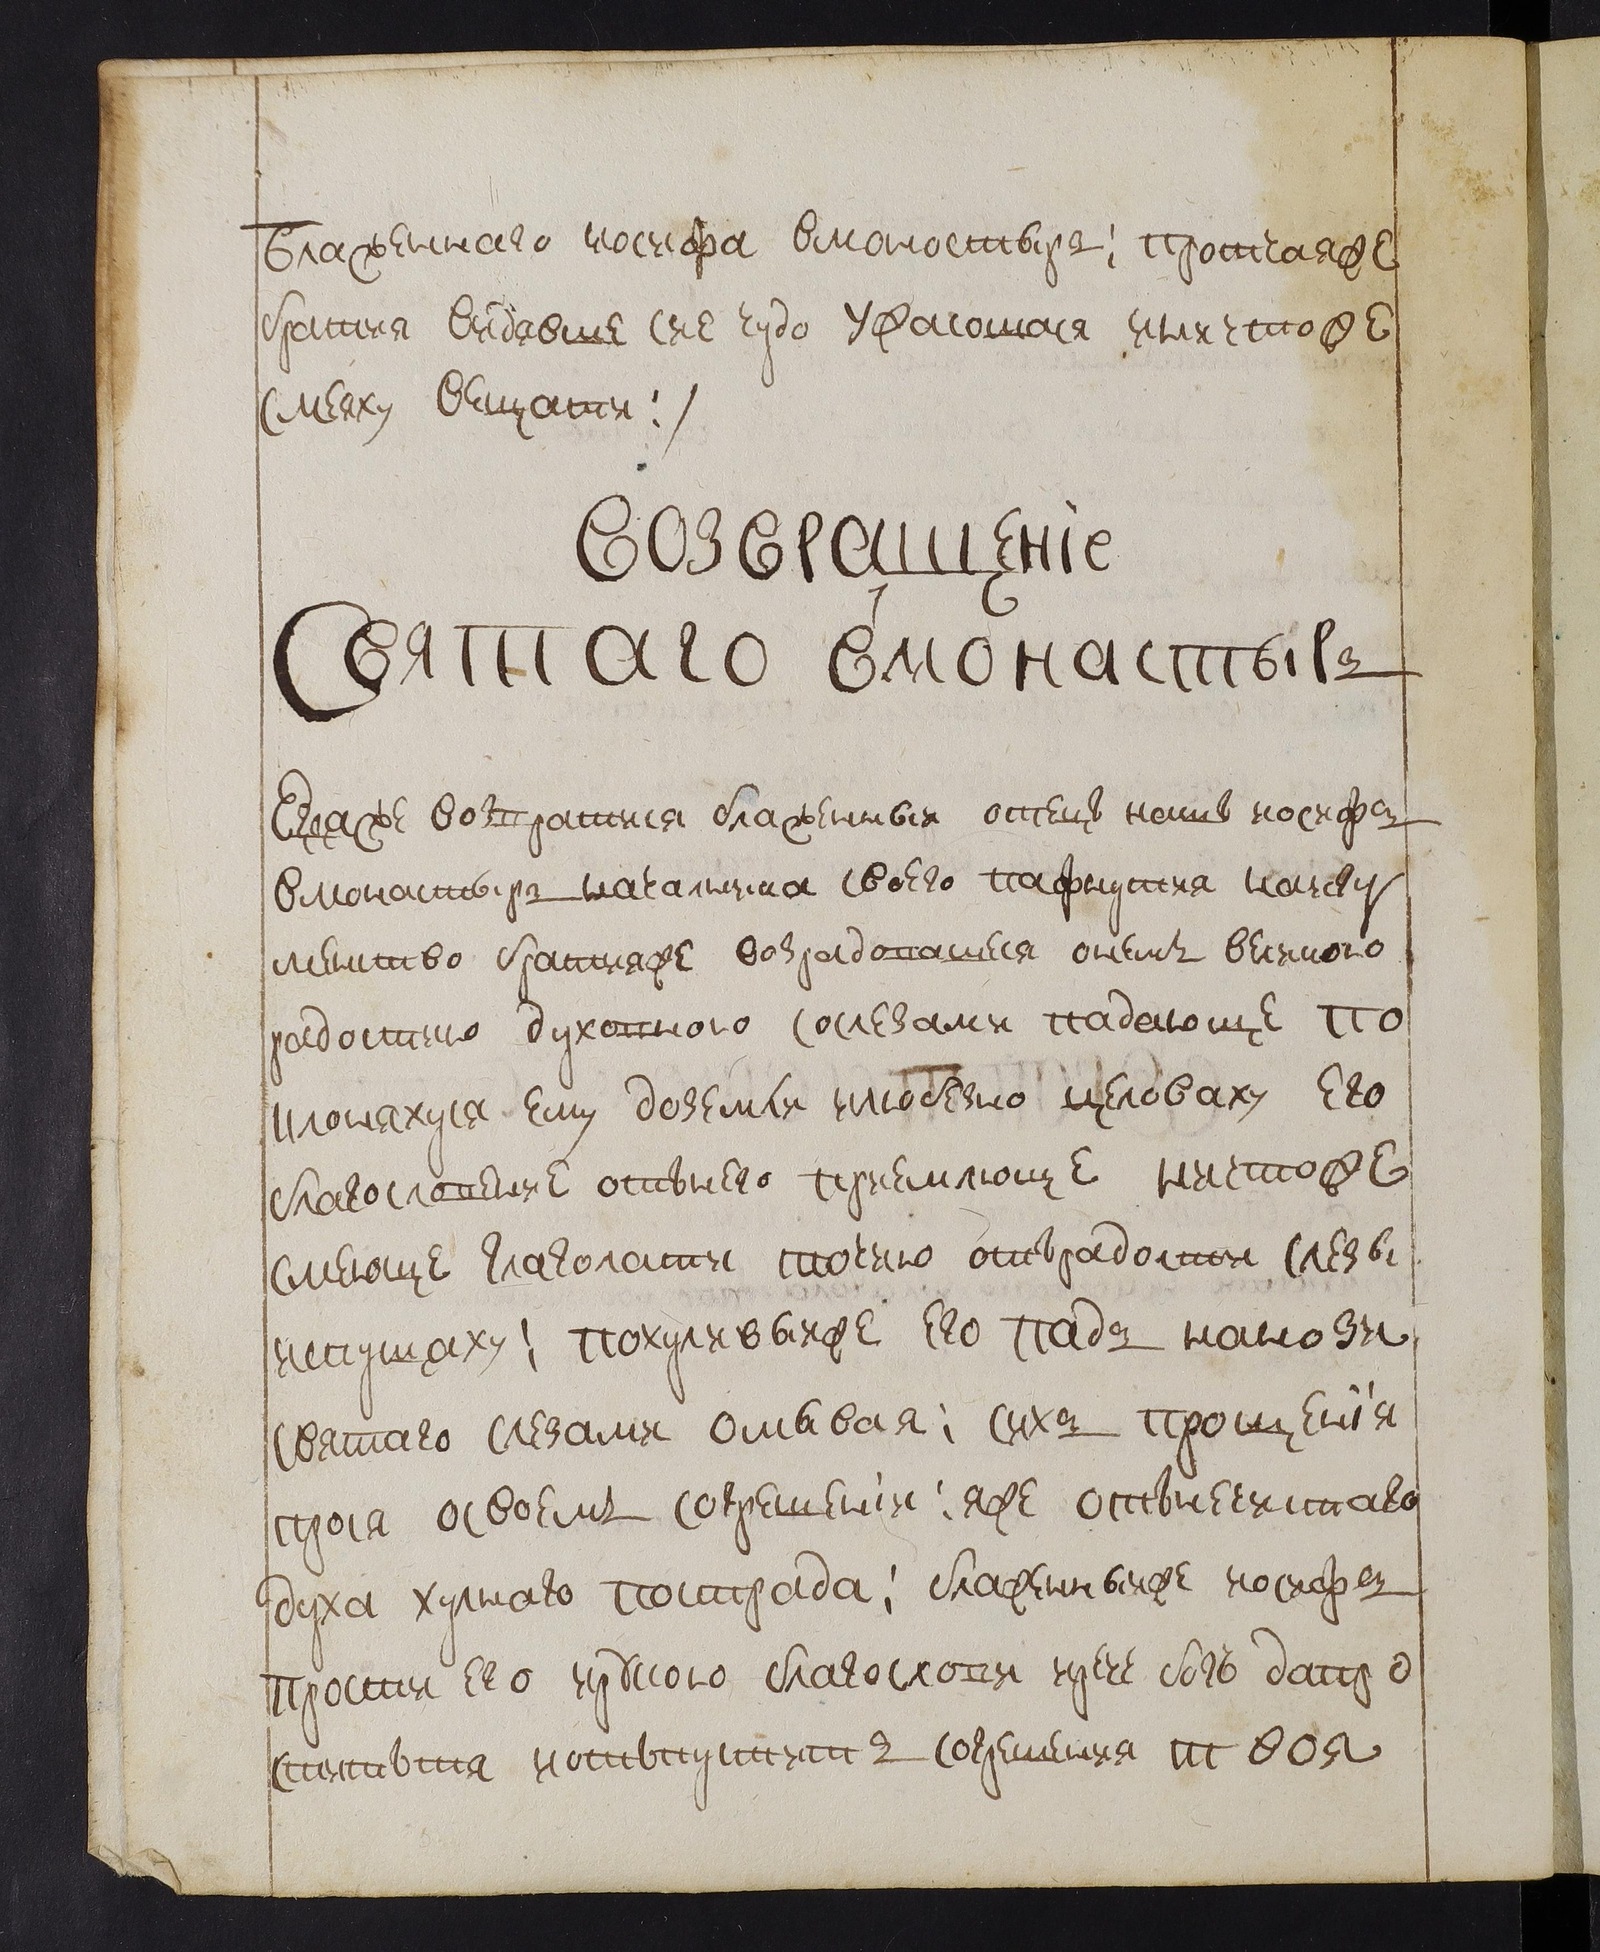 Блаженнаго иосифа вмоностырь; протчаяже
братия видявше сие чудо ужасошася иничтоже
смеяху вещати:/
возвращеніе
Святаго вмонастырь
Егдаже возвратися блаженныи отецъ нашъ иосифъ
вмонастырь началника своего пафнутия наигу
менство братияже возрадовашеся онемъ велиею
радостию духовною сослезами падающе по
клоняхуся ему доземли илюбезно целоваху его
благословение отънего приемлюще ничтоже
смеюще глаголати точию отърадости слезы
испущаху; похуливыиже его падъ нанози
святаго слезами омывая; сихъ прощения
прося освоемъ согрешеніи; яже отънечистаго
духа хулнаго пострада; блаженныиже иосифъ
прости его ирукою благослови ирече богъ дапро
ститьтя иотьпуститъ согрешения твоя